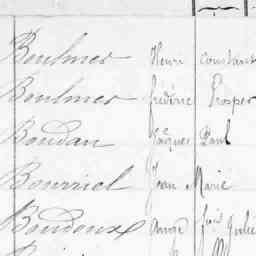 Boulmer Henri Constant
Boulmer Frédéric Prosper
Boudan Jacques Paul
Bourriel Jean Marie
Boudoux Ange Julie